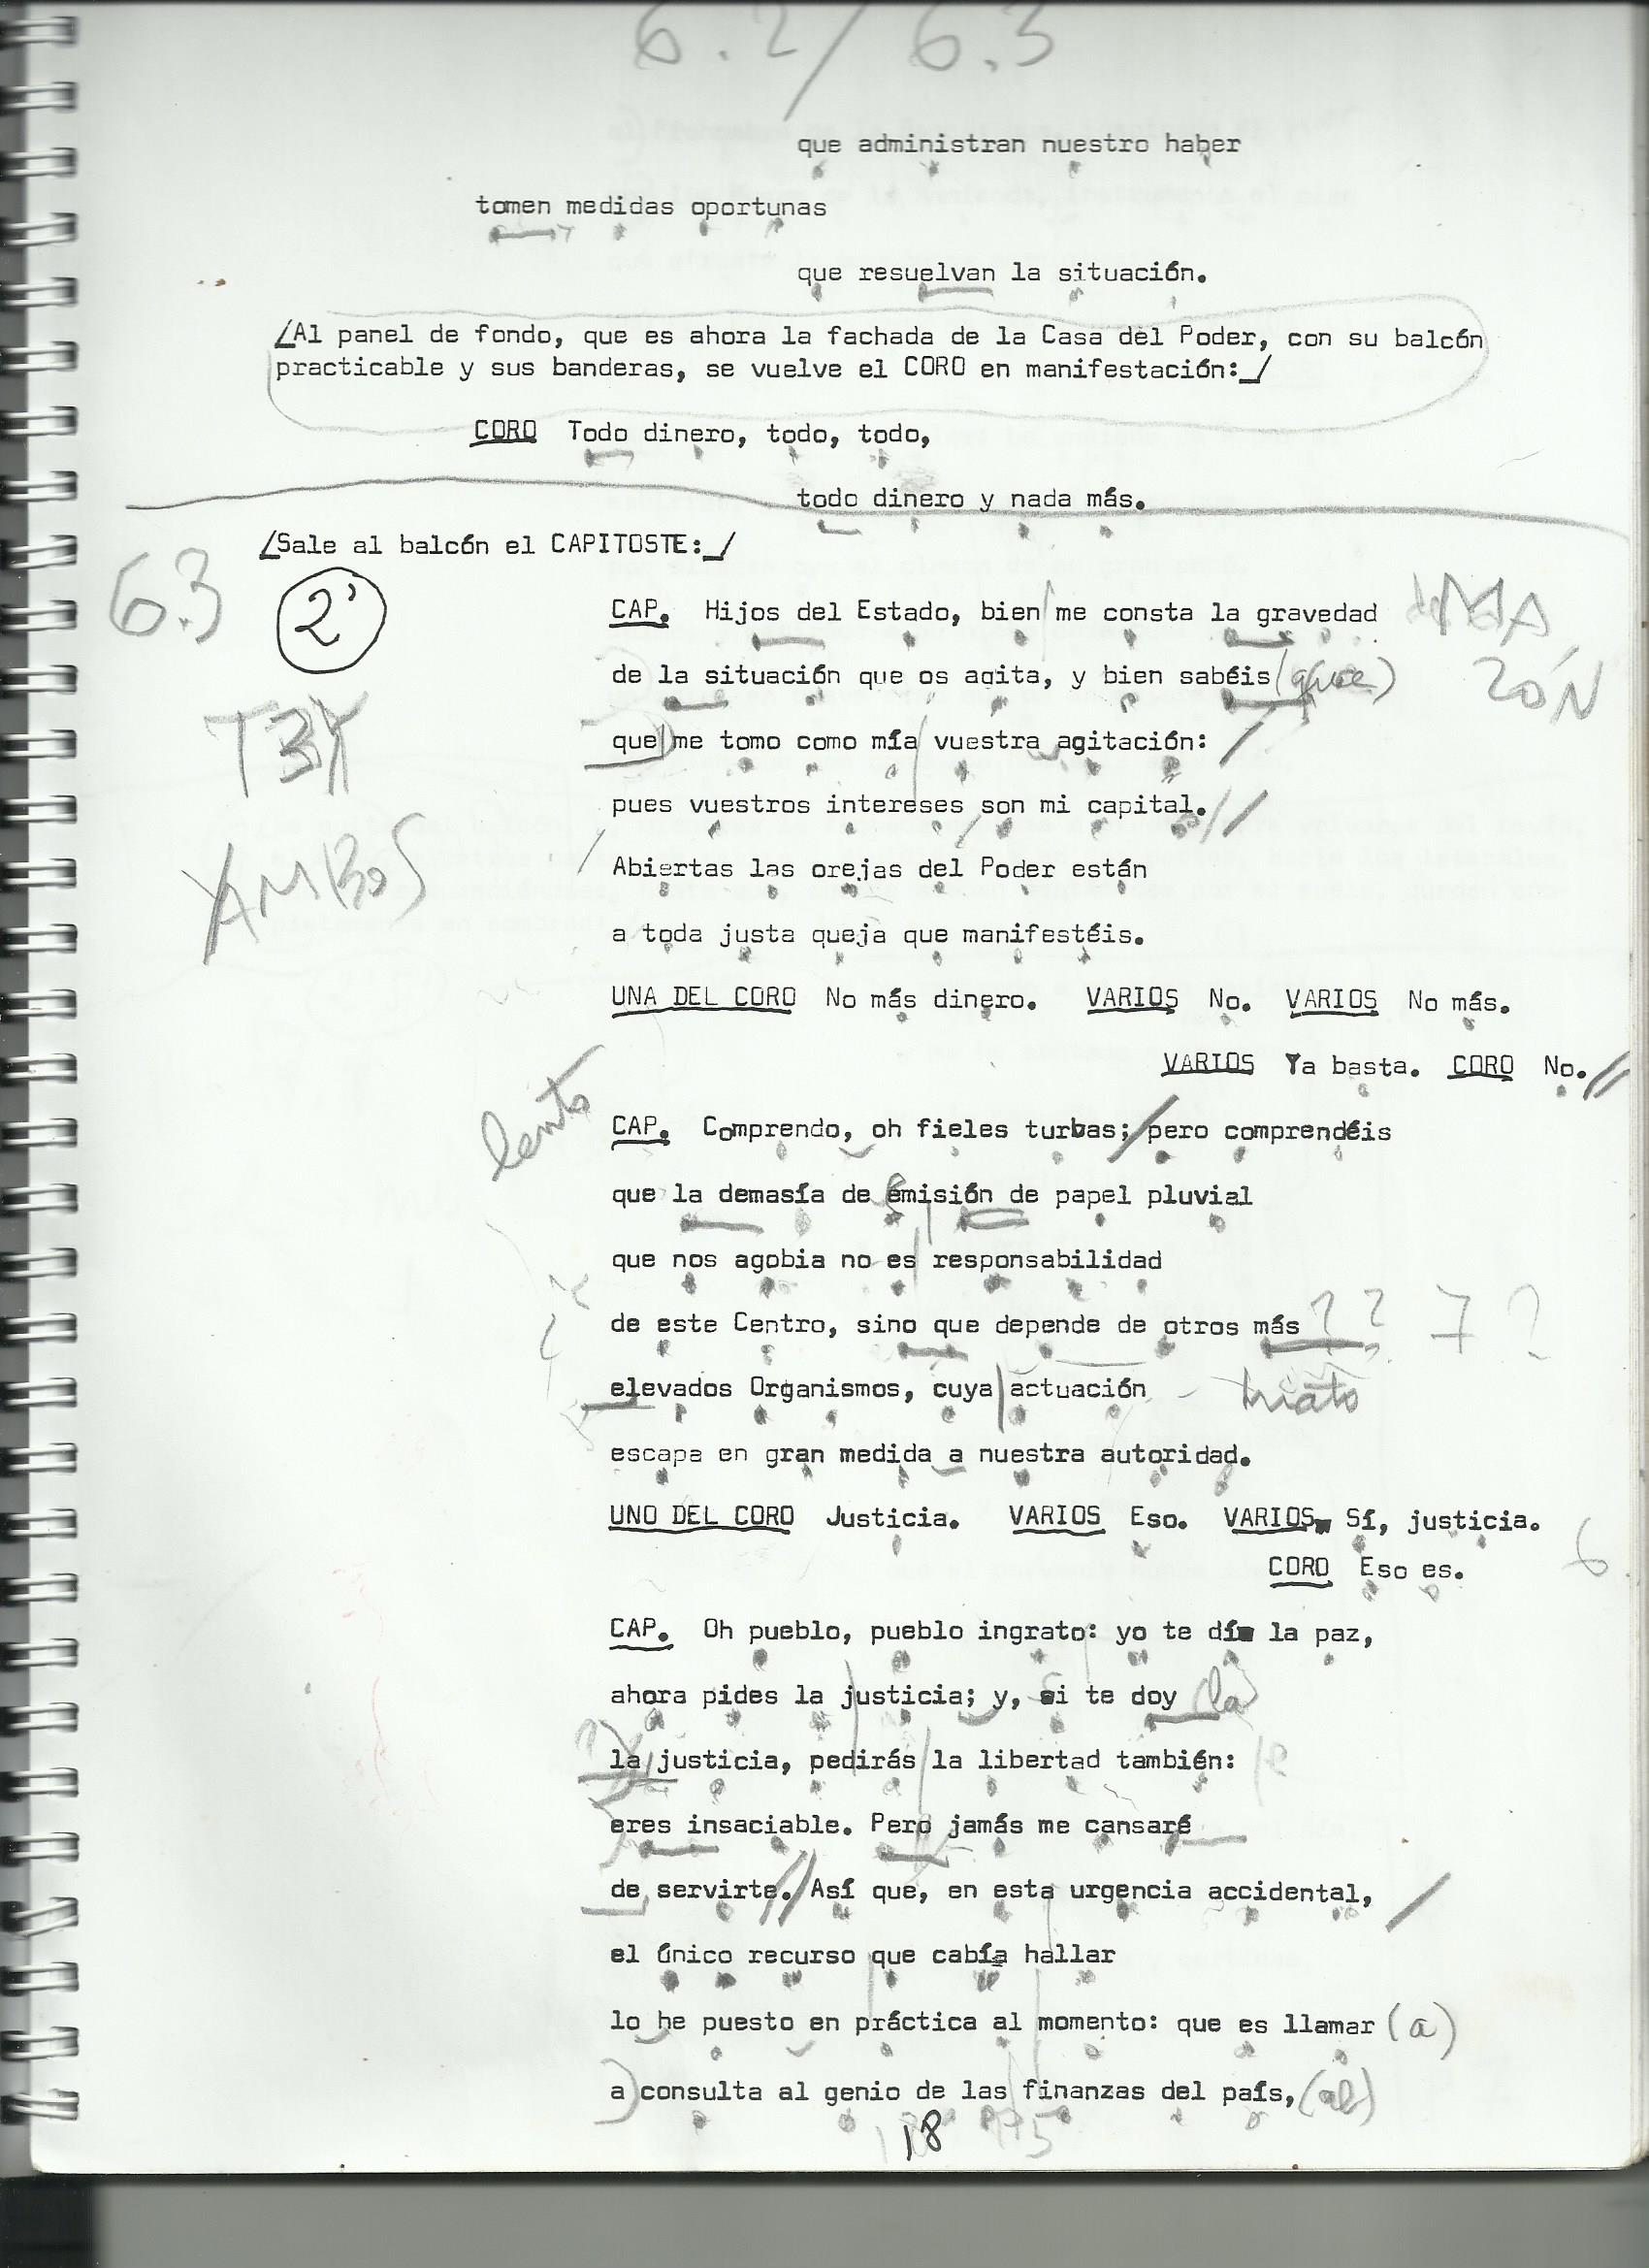 6.2/6.3
que administran nuestro haber
tomen medidas oportunas
que resuelvan la situación.
/Al panel de fondo, que es ahora la fachada de la Casa del Poder, con su balcón
practicable y sus banderas, se vuelve el CORO en manifestación:_/
CORO Todo dinero, todo, todo,
todo dinero y nada más.
/Sale al balcón el CAPITOSTE:_/
6.3 2'
CAP. Hijos del Estado, bien me consta la gravedad
MA
de la situación que os agita, y bien sabéis (que)
ZÓN
que me tomo como mía vuestra agitación:
pues vuestros intereses son mi capital.//
YAMBOS
Abiertas las orejas del Poder están
a toda justa queja que manifestéis.
UNA DEL CORO No más dinero. VARIOS No. VARIOS No más.
VARIOS Ya basta. CORO No.//
lento
CAP. Comprendo, oh fieles turbas; pero comprendéis
que la demasía de emisión de papel pluvial
que nos agobia no es responsabilidad
de este Centro, sino que depende de otros más ?? 7?
elevados Organismos, cuya actuación - hiato
escapa en gran medida a nuestra autoridad.
UNO DEL CORO Justicia. VARIOS Eso. VARIOS Sí, justicia.
CORO Eso es. 6
CAP. Oh pueblo, pueblo ingrato: yo te dí la paz,
ahora pides la justicia; y, si te doy (la)
la justicia, pedirás la libertad también:
eres insaciable. Pero jamás me cansaré
de servirte.// Así que, en esta urgencia accidental, /
el único recurso que cabía hallar
lo he puesto en práctica al momento: que es llamar (a)
a consulta al genio de las finanzas del país, (al)
18